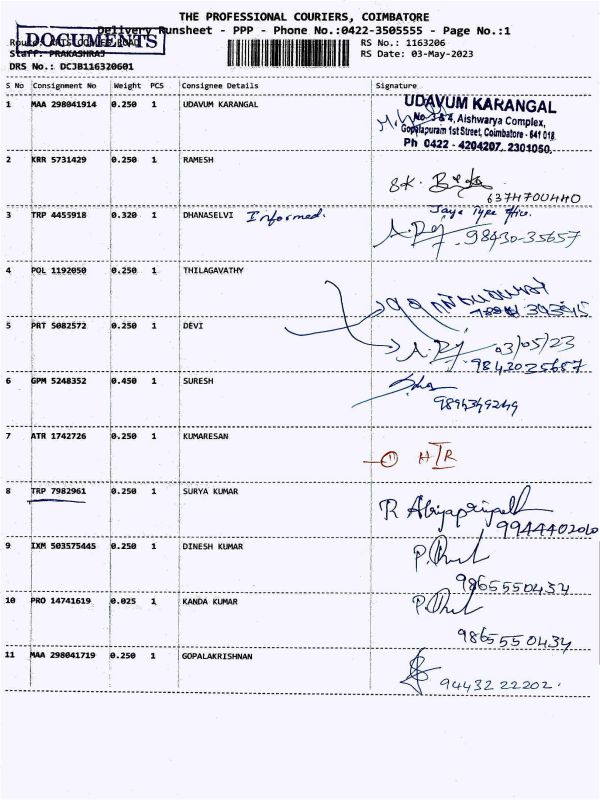 THE PROFESSIONAL COURIERS, COIMBATORE
Delivery Runsheet - PPP - Phone No.:0422-3505555 - Page No.:1
DOCUMENTS
RS No.: 1163206
Staff: PRAKASHRAJ
RS Date: 03-May-2023
DRS No.: DCJB116320601
S No Consignment No Weight PCS Consignee Details Signature
1 MAA 298041914 0.250 1 UDAVUM KARANGAL
UDAVUM KARANGAL
No 3 & 4, Aishwarya Complex,
Gopalapuram 1st Street, Coimbatore - 641 018.
Ph 0422 - 4204207, 2301050.
2 KRR 5731429 0.250 1 RAMESH
6374700440
3 TRP 4455918 0.320 1 DHANASELVI Informed.
Jaya Type office.
98430-35657
4 POL 1192050 0.250 1 THILAGAVATHY
5 PRT 5082572 0.250 1 DEVI
03/05/23
6 GPM 5248352 0.450 1 SURESH
7 ATR 1742726 0.250 1 KUMARESAN
8 TRP 7982961 0.250 1 SURYA KUMAR
9 IXM 503575445 0.250 1 DINESH KUMAR
9865550434
10 PRO 14741619 0.025 1 KANDA KUMAR
9865550434
11 MAA 298041719 0.250 1 GOPALAKRISHNAN
94432 22202.